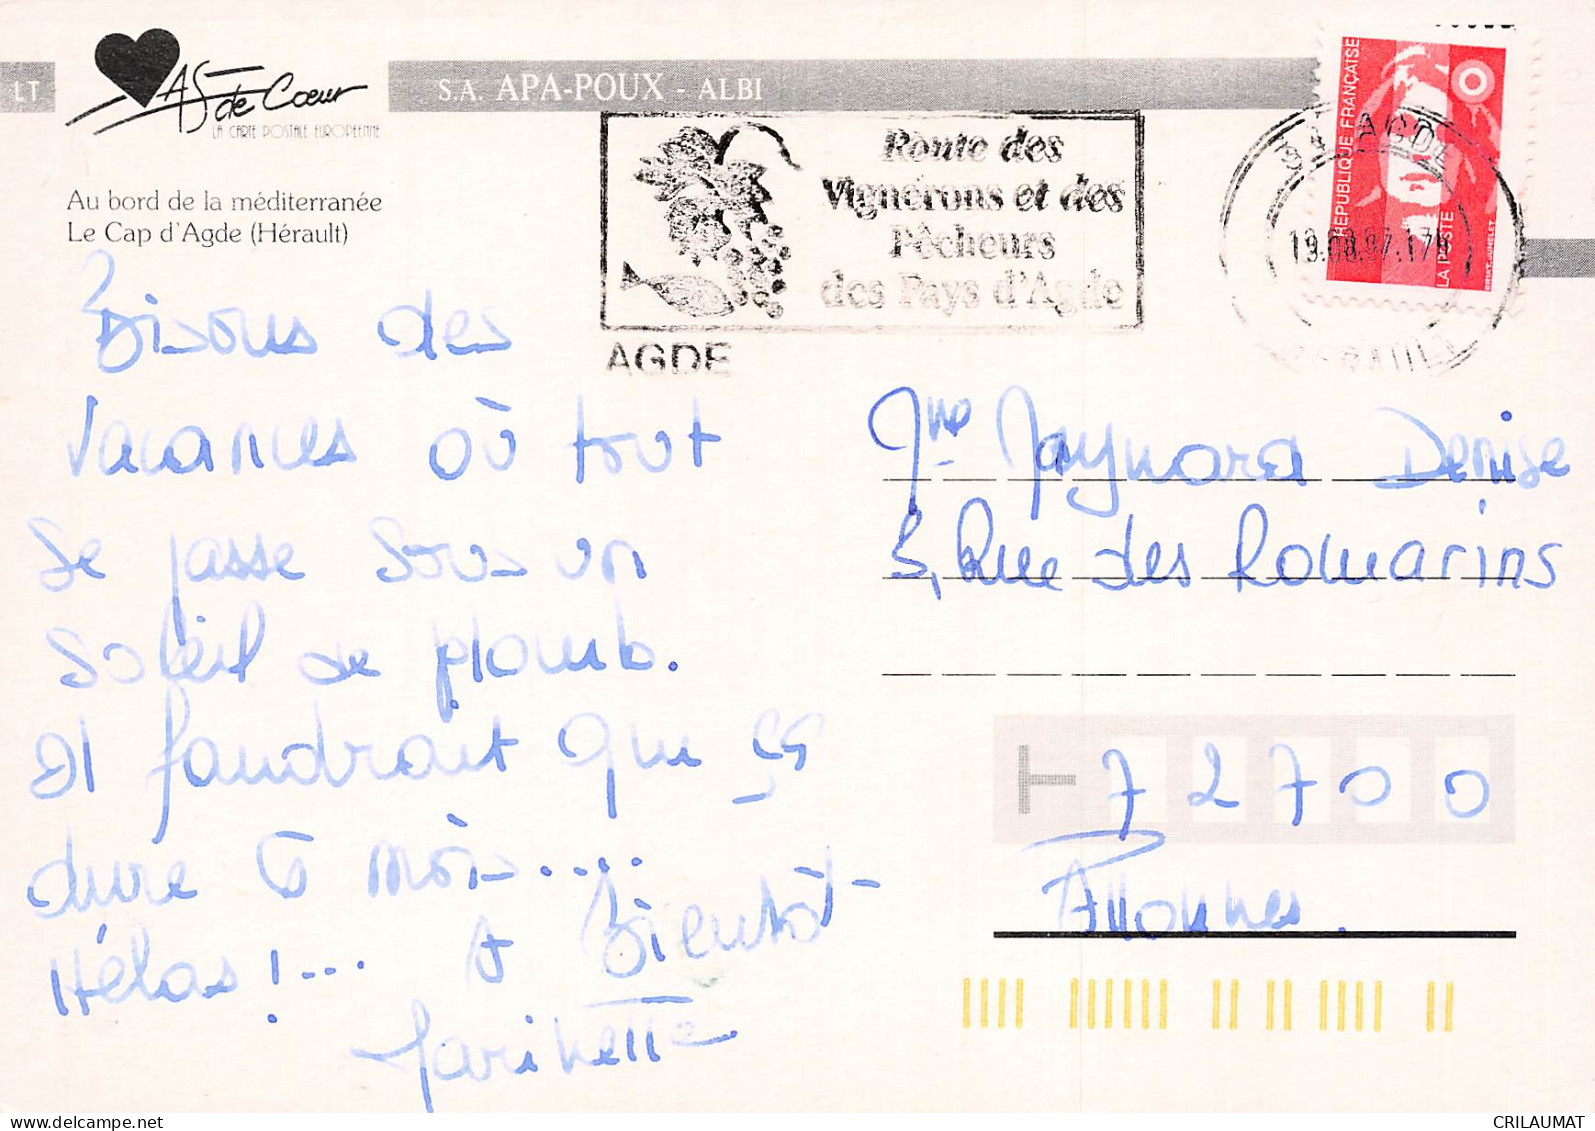 LT
AS de Cœur
LA CARTE POSTALE EUROPEENNE
S.A. APA-POUX - ALBI
Au bord de la méditerranée
Le Cap d'Agde (Hérault)
Route des
Vignerons et des
Pêcheurs
des Pays d'Agde
AGDE
34 AGDE
19.08.97.17H
HERAULT
REPUBLIQUE FRANÇAISE
LA POSTE
Bisous des
Vacances où tout
se passe sous un
soleil de plomb.
Il faudrait que ça
dure 6 mois....
Hélas !... A Bientôt
Marinette
Mme Maynara Denise
3, Rue des Romarins
72700
Allonnes.
CRILAUMAT